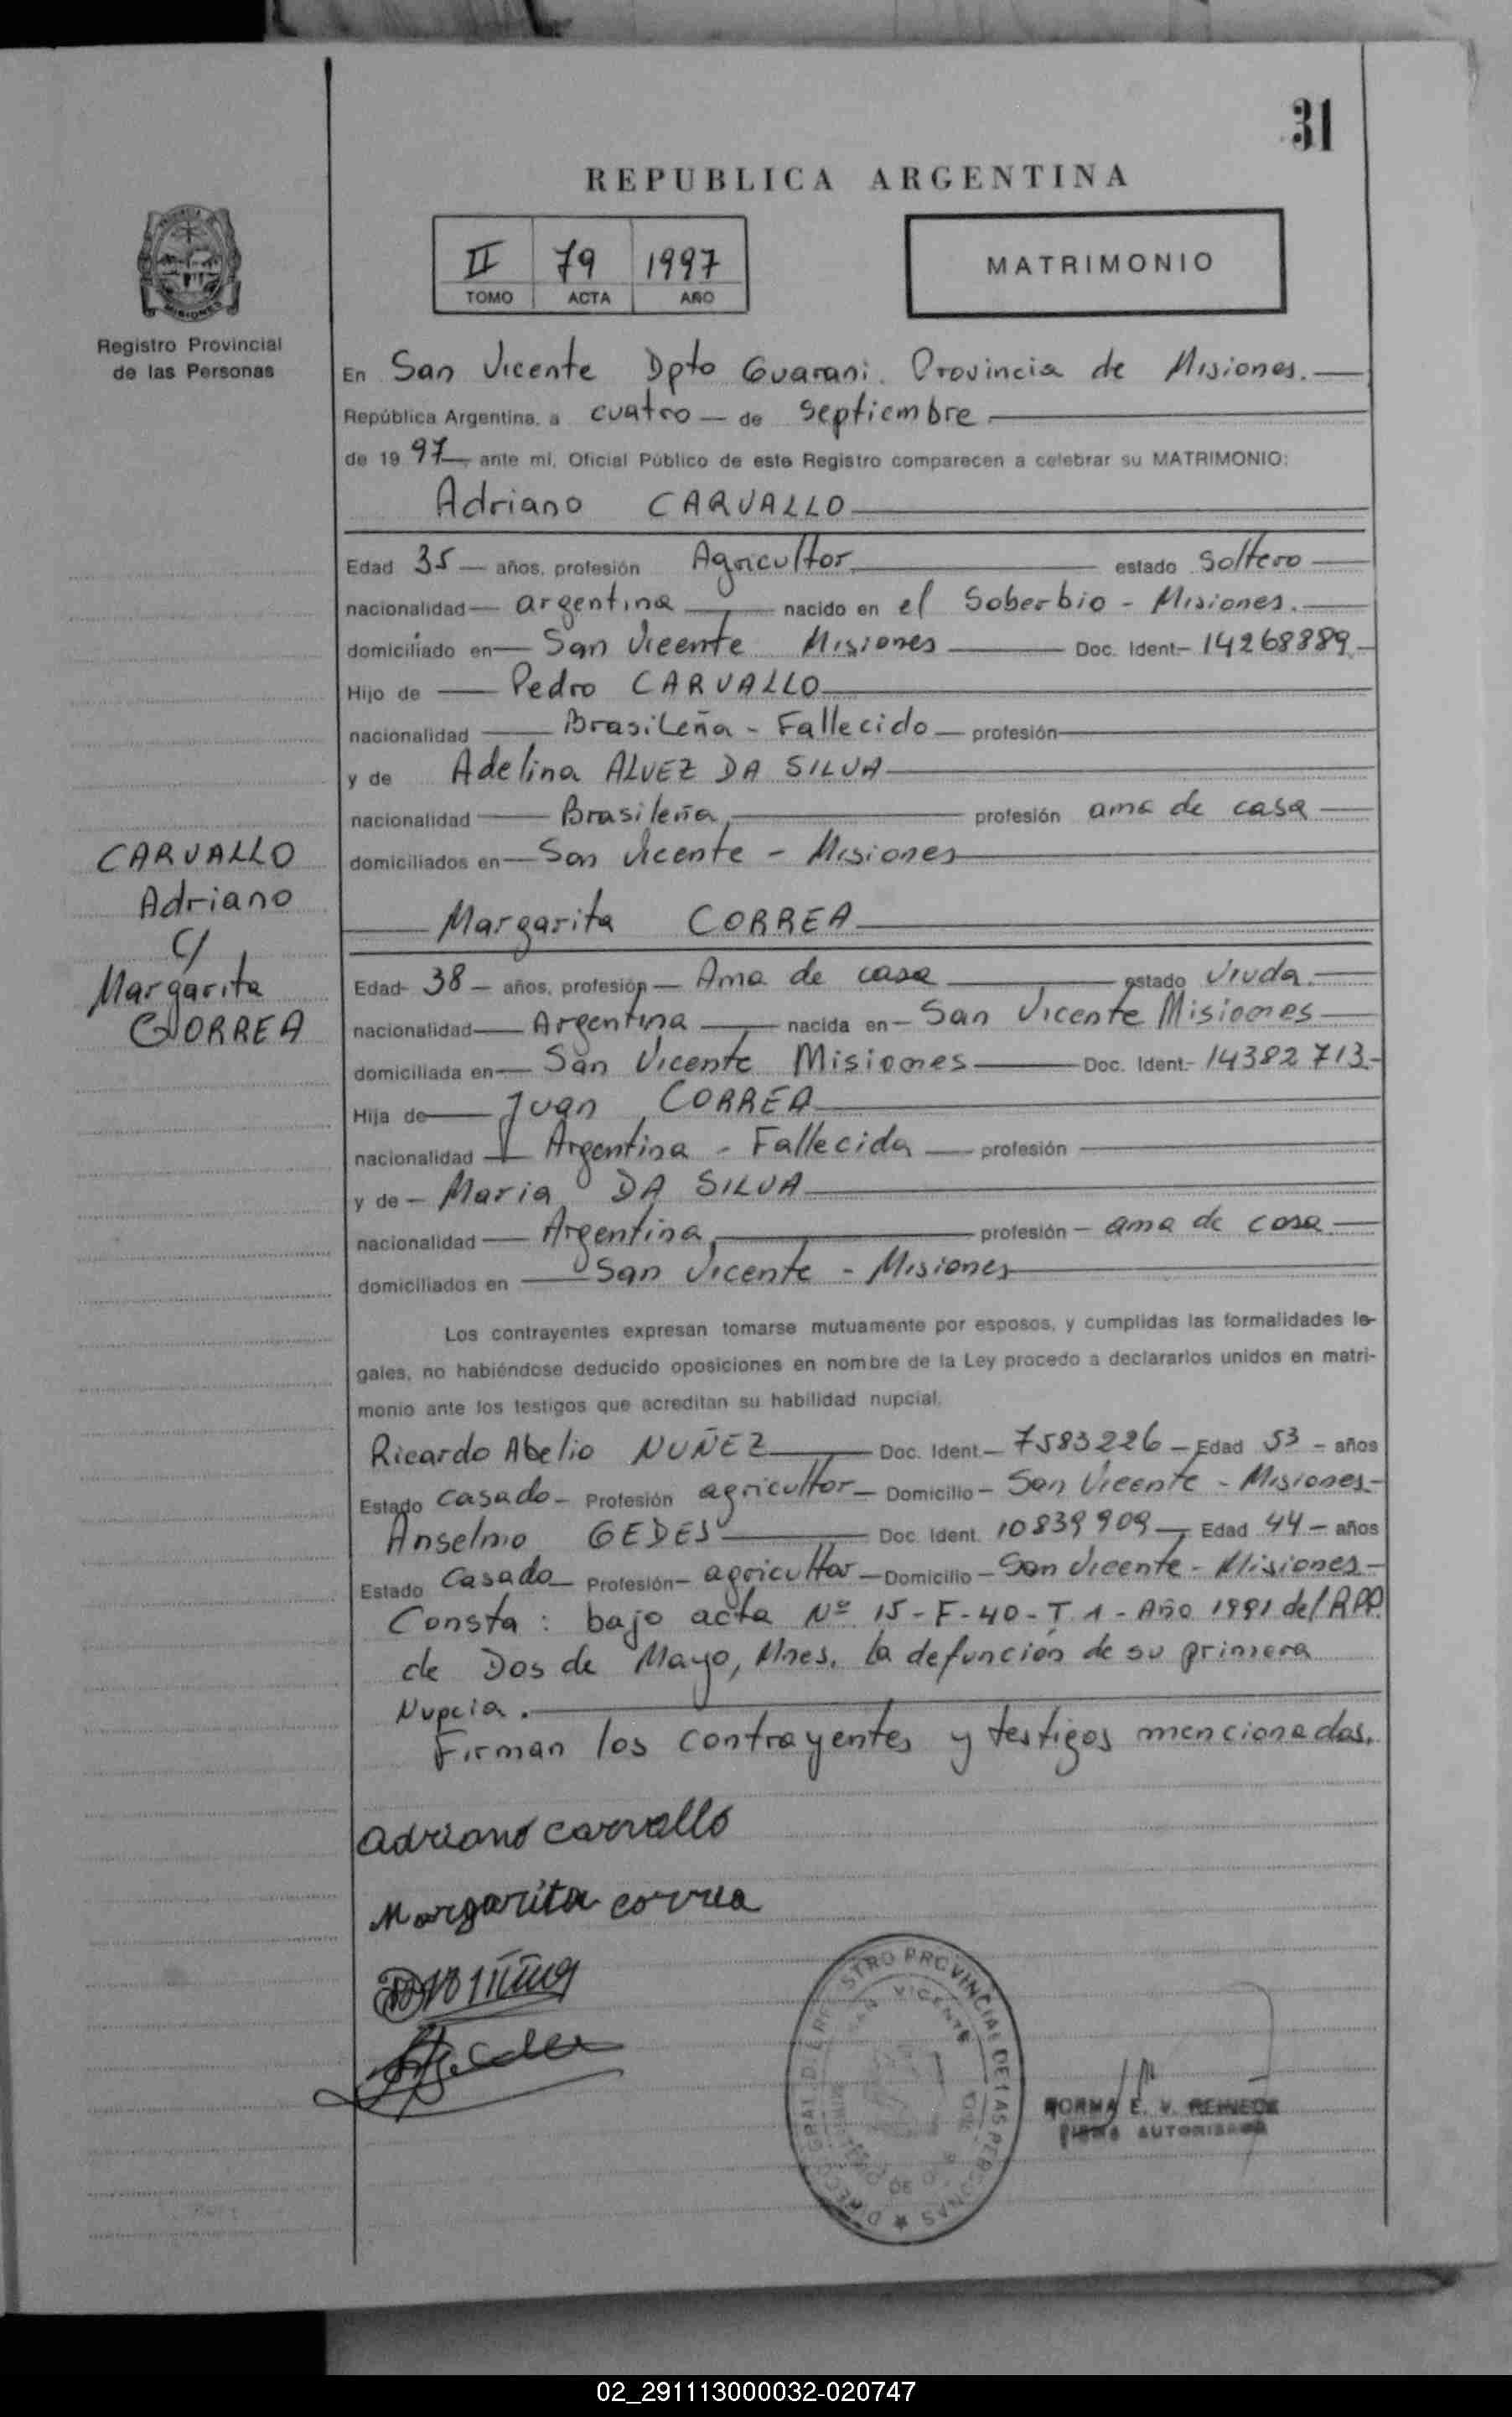 31
REPUBLICA ARGENTINA
II 79 1997
TOMO ACTA AÑO
MATRIMONIO
PROVINCIA DE
MISIONES
Registro Provincial
de las Personas
En San Vicente Dpto Guarani. Provincia de Misiones.
República Argentina, a cuatro de septiembre
de 1997, ante mi, Oficial Público de este Registro comparecen a celebrar su MATRIMONIO:
Adriano CARVALLO
Edad 35 años, profesión Agricultor estado Soltero
nacionalidad argentina nacido en el Soberbio - Misiones.
domiciliado en San Vicente Misiones Doc. Ident. 14268889.
Hijo de Pedro CARVALLO
nacionalidad Brasileña - Fallecido profesión
y de Adelina ALVEZ DA SILVA
nacionalidad Brasileña, profesión ama de casa
domiciliados en San Vicente - Misiones
CARVALLO
Adriano
c/
Margarita
CORREA
Margarita CORREA
Edad 38 años, profesión Ama de casa estado Viuda.
nacionalidad Argentina nacida en San Vicente Misiones
domiciliada en San Vicente Misiones Doc. Ident. 14382713
Hija de Juan CORREA
nacionalidad Argentina - Fallecida profesión
y de Maria DA SILVA
nacionalidad Argentina, profesión ama de casa
domiciliados en San Vicente - Misiones
Los contrayentes expresan tomarse mutuamente por esposos, y cumplidas las formalidades le-
gales, no habiéndose deducido oposiciones en nombre de la Ley procedo a declararlos unidos en matri-
monio ante los testigos que acreditan su habilidad nupcial.
Ricardo Abelio NUÑEZ Doc. Ident. 7583226 Edad 53 años
Estado casado Profesión agricultor Domicilio San Vicente - Misiones
Anselmo GEDES Doc. Ident. 10839909 Edad 44 años
Estado Casado Profesión agricultor Domicilio San Vicente - Misiones
Consta: bajo acta Nº 15-F-40-T.1-Año 1991 del RPP.
de Dos de Mayo, Mnes. la defunción de su primera
Nupcia.
Firman los contrayentes y testigos mencionados.
adriano carvallo
Margarita correa
REGISTRO PROVINCIAL DE LAS PERSONAS
SAN VICENTE
NORMA E. V. REINECK
FIRMA AUTORIZADA
02_291113000032-020747